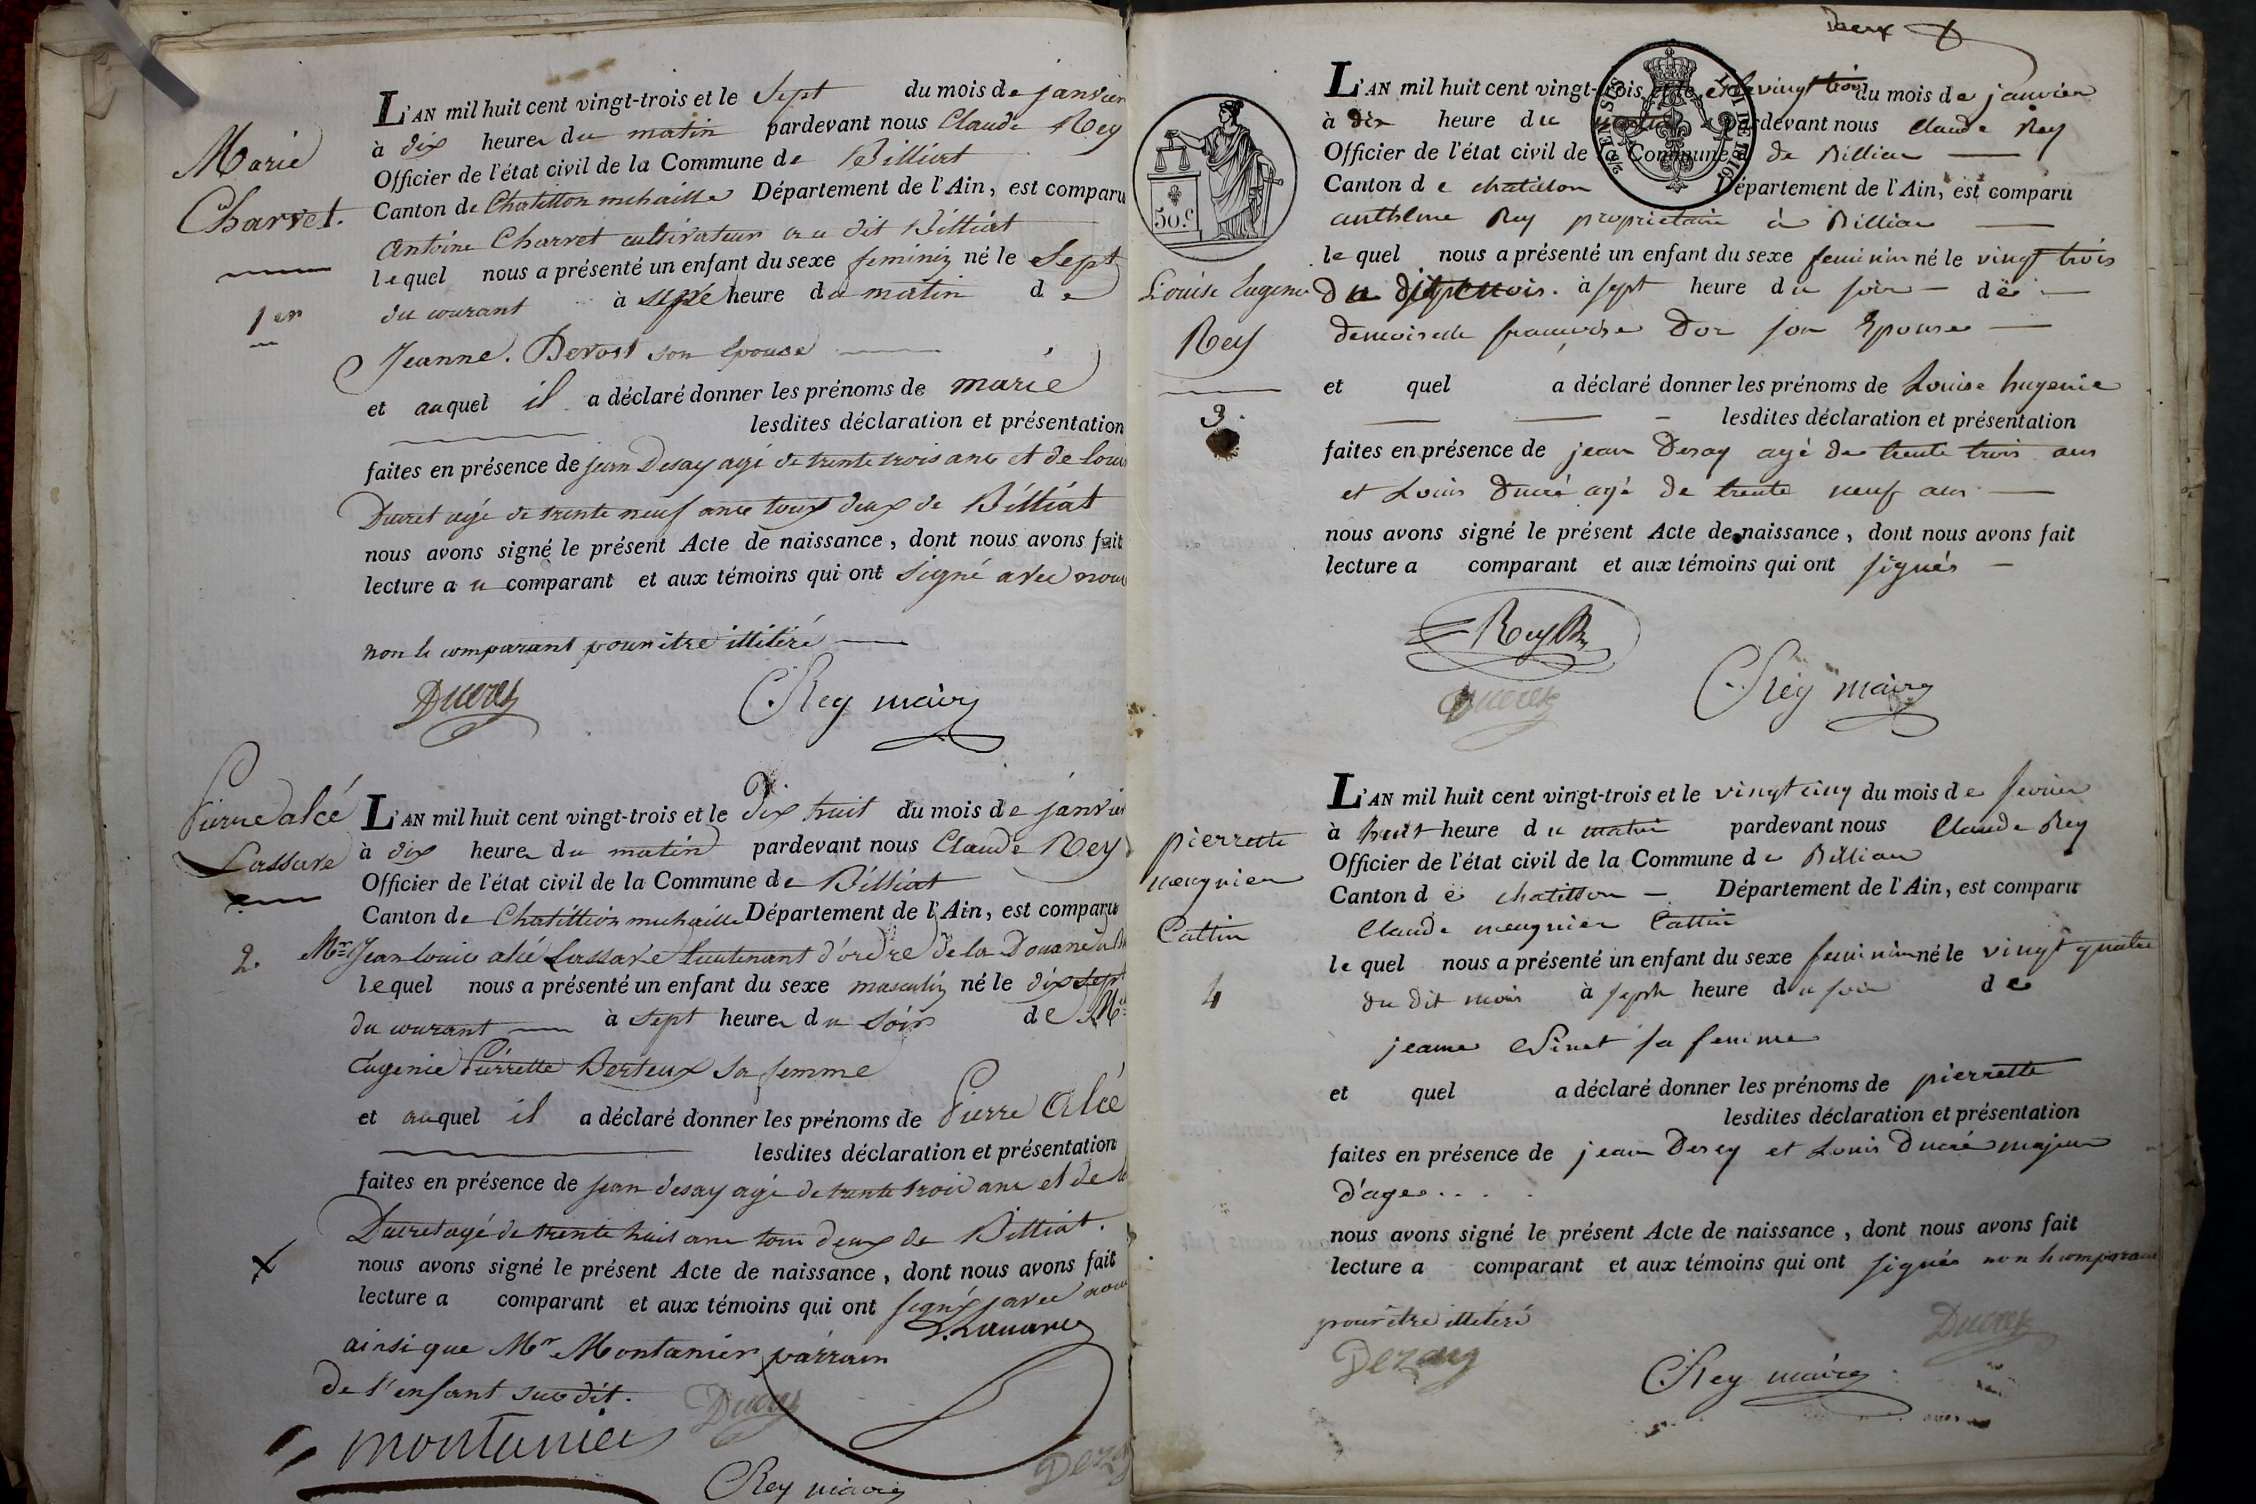 Marie
Charvet.
1er
L'AN mil huit cent vingt-trois et le Sept du mois de janvier
à dix heures du matin pardevant nous Claude Rey
Officier de l'état civil de la Commune de Billiat
Canton de Chatillon michaille Département de l'Ain, est comparu
Antoine Charvet cultivateur au dit Billiat
lequel nous a présenté un enfant du sexe feminin né le Sept
du courant à heure du matin de
Jeanne. son Epouse
et auquel il a déclaré donner les prénoms de marie
lesdites déclaration et présentation
faites en présence de jean Desay agé de trente trois ans et de Loui
Ducret agé de trente neuf ans tous deux de Billiat
nous avons signé le présent Acte de naissance, dont nous avons fait
lecture au comparant et aux témoins qui ont signé avec nous
non le comparant pour être illitéré
Ducret
Rey maire
Pierre alcé
Lassave
2.
L'AN mil huit cent vingt-trois et le Dix huit du mois de janvier
à dix heures du matin pardevant nous Claude Rey
Officier de l'état civil de la Commune de Billiat
Canton de Chatillion michaille Département de l'Ain, est comparu
Mr Jean Louis alcé Lassave Lieutenant d'ordre de la Douane a
lequel nous a présenté un enfant du sexe masculin né le dix sept
du courant à sept heures du soir de
Eugenie Pierrette Berteux sa femme
et auquel il a déclaré donner les prénoms de Pierre Alcé
lesdites déclaration et présentation
faites en présence de jean desay agé de trente trois ans et de
Ducret agé de trente huit ans tous deux de Billiat.
nous avons signé le présent Acte de naissance, dont nous avons fait
lecture a comparant et aux témoins qui ont signé avec nous
ainsi que Mr Montanier parrain
de l'enfant susdit.
Ducret
montanier
Rey maire
Deux
L'AN mil huit cent vingt-trois et le vingt trois du mois de janvier
à dix heure du pardevant nous Claude Rey
Officier de l'état civil de la Commune de Billiat
Canton de chatillon Département de l'Ain, est comparu
anthelme Rey proprietaire à Billiat
lequel nous a présenté un enfant du sexe feminin né le vingt trois
du dit mois. à sept heure du soir de
demoiselle francoise son Epouse
et quel a déclaré donner les prénoms de Louise Eugenie
lesdites déclaration et présentation
faites en présence de jean Desay agé de trente trois ans
et Louis Ducré agé de trente neuf ans
nous avons signé le présent Acte de naissance, dont nous avons fait
lecture a comparant et aux témoins qui ont signés
50.c
LOI DE 1816
Louise Eugenie
Rey
3.
Rey
Ducret
Rey maire
pierrette
meugnier
Cattin
4
L'AN mil huit cent vingt-trois et le vingt cinq du mois de fevrier
à huit heure du matin pardevant nous Claude Rey
Officier de l'état civil de la Commune de Billiat
Canton de chatillon Département de l'Ain, est comparu
Claude meugnier Cattin
lequel nous a présenté un enfant du sexe feminin né le vingt quatre
du dit mois à sept heure du soir de
jeanne sa femme
et quel a déclaré donner les prénoms de pierrette
lesdites déclaration et présentation
faites en présence de jean Desey et Louis Ducré majeur
d'age....
nous avons signé le présent Acte de naissance, dont nous avons fait
lecture a comparant et aux témoins qui ont signés non le comparant
pour être illitéré
Ducret
Dezay
Rey maire